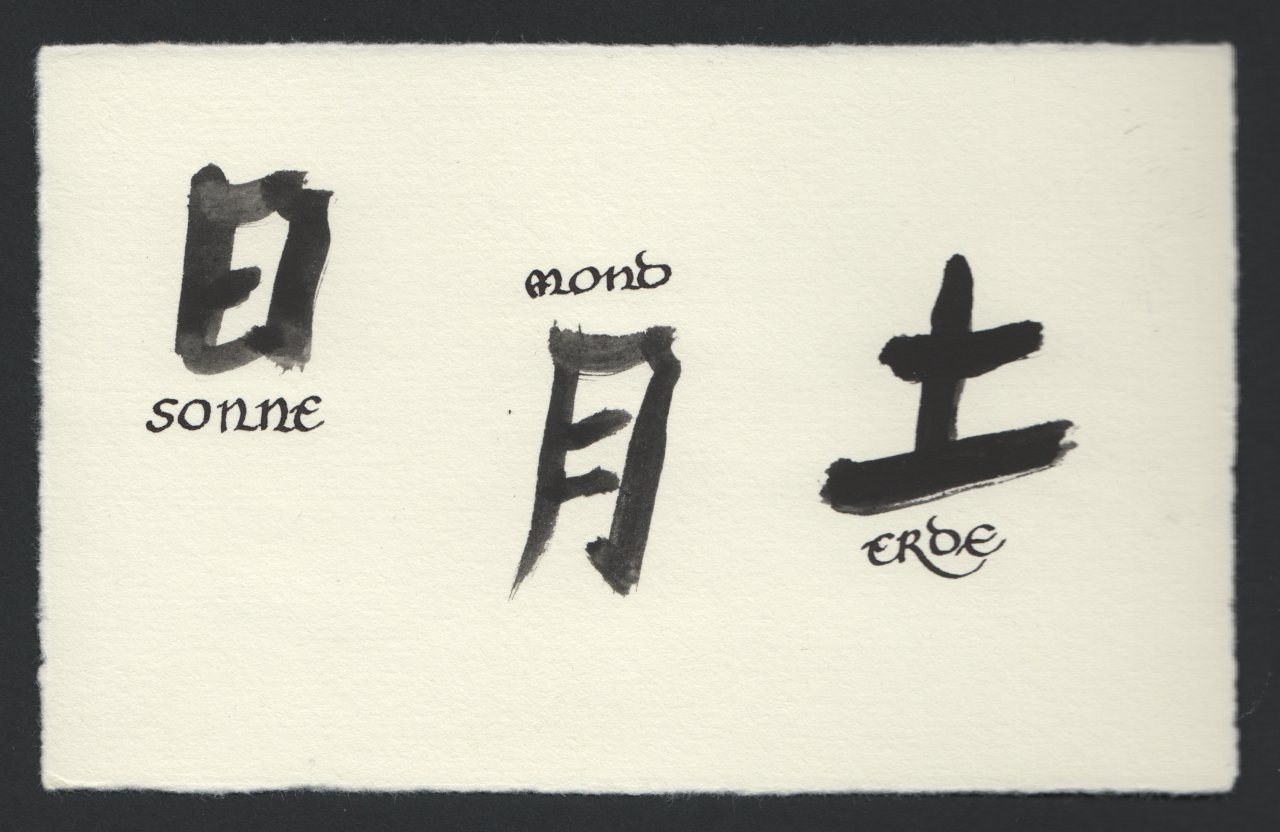 日
SONNE
MOND
月
土
ERDE